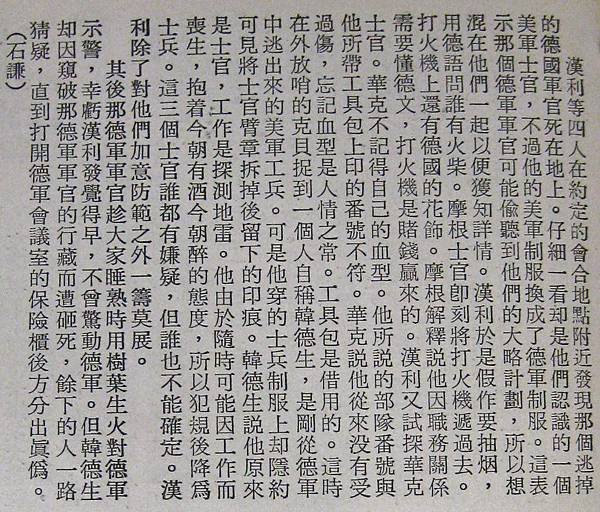 漢利等四人在約定的會合地點附近發現那個逃掉
的德國軍官死在地上。仔細一看却是他們認識的一個
美軍士官，不過他的美軍制服換成了德軍制服。這表
示那個德軍軍官可能偷聽到他們的大略計劃，所以想
混在他們一起以便獲知詳情。漢利於是假作要抽烟，
用德語問誰有火柴。摩根士官卽刻將打火機遞過去。
打火機上還有德國的花飾。摩根解釋說他因職務關係
需要懂德文，打火機是賭錢贏來的。漢利又試探華克
士官。華克不記得自己的血型。他所說的部隊番號與
他所帶工具包上印的番號不符。華克說他從來沒有受
過傷，忘記血型是人情之常。工具包是借用的。這時
在外放哨的克貝捉到一個人自稱韓德生，是剛從德軍
中逃出來的美軍工兵。可是他穿的士兵制服上却隱約
可見將士官臂章拆掉後留下的印痕。韓德生說他原來
是士官，工作是探測地雷。他由於隨時可能因工作而
喪生，抱着今朝有酒今朝醉的態度，所以犯規後降爲
士兵。這三個士官誰都有嫌疑，但誰也不能確定。漢
利除了對他們加意防範之外一籌莫展。
其後那德軍軍官趁大家睡熟時用樹葉生火對德軍
示警，幸虧漢利發覺得早，不曾驚動德軍。但韓德生
却因窺破那德軍軍官的行藏而遭砸死，餘下的人一路
猜疑，直到打開德軍會議室的保險櫃後方分出眞僞。
（石謙）